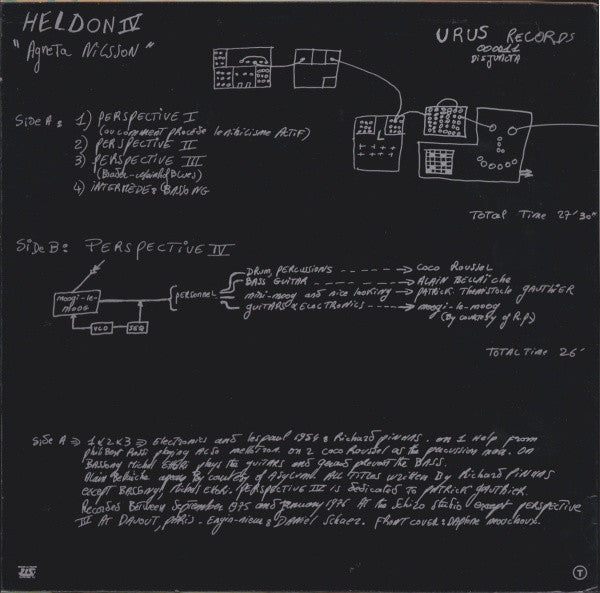 HELDON IV
"Agneta Nilsson"
URUS RECORDS
000011
DISJUNCTA
Side A: 1) PERSPECTIVE I
(ou comment procède le nihilisme Actif)
2) PERSPECTIVE II
3) PERSPECTIVE III
(Baader-Meinhof Blues)
4) INTERMEDE: BASSONG
Total Time 27'30"
Side B: PERSPECTIVE IV
moogi-le-moog
VCO
SEQ
Personnel
DRUM, PERCUSSIONS ----> COCO ROUSSEL
BASS GUITAR ----> ALAIN BELLAICHE
mini-moog and nice looking ----> PATRICK Themistocle GAUTHIER
GUITARS & ELECTRONICS ----> moogi-le-moog
(By courtesy of R.P.)
TOTAL Time 26'
Side A => 1x2x3 => Electronics and lespaul 1954: Richard PINHAS. on 1 Help from
philibert Rossi playing Also mellotron. on 2 Coco Roussel as the percussion man. On
BASSONG Michel Ettori plays the guitars and gérard prévost the BASS.
Alain Bellaiche appears by courtesy of Asylum. ALL TITLES written By Richard PINHAS
except BASSONG, Michel Ettori. PERSPECTIVE III is dedicated to patrick gauthier.
Recorded Between September 1975 and January 1976 At the Schizo studio except perspective
IV AT DAVOUT, PARIS. Engin-nieur: DANIEL Schaez. Front cover: Daphne mouchoux.
T